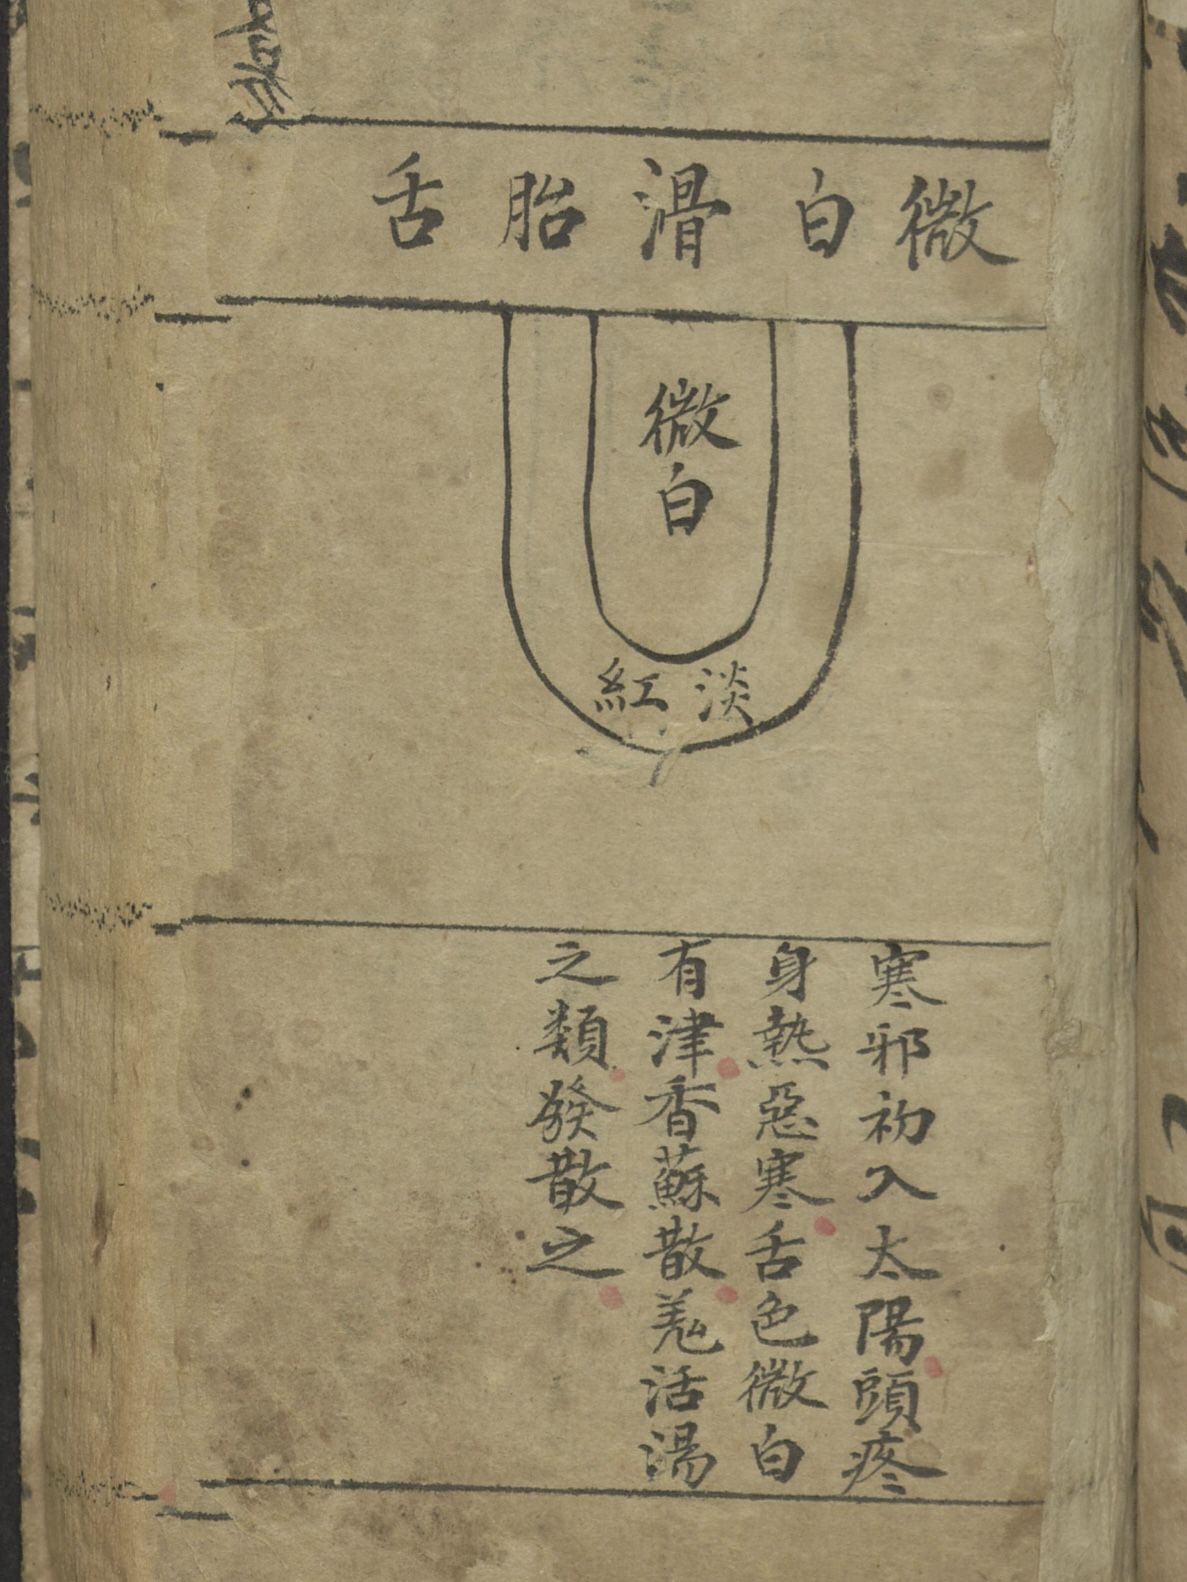 微白滑胎舌
微白
淡紅
寒邪初入太陽頭疼
身熱惡寒舌色微白
有津香蘇散羗活湯
之類發散之